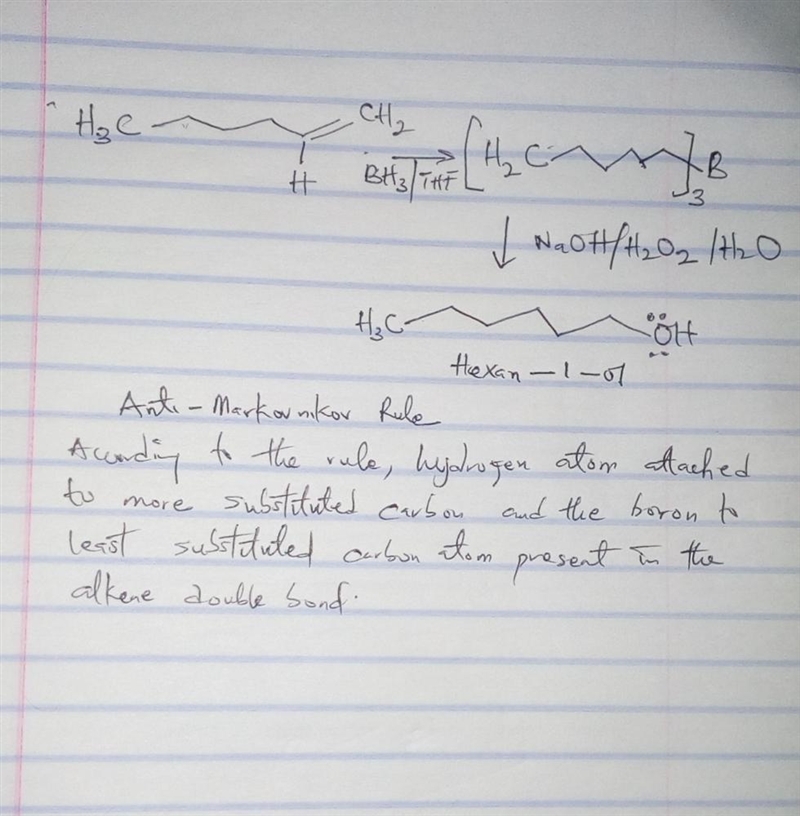 H₃C CH₂
H
BH₃/THF [H₂C ]₃B
NaOH/H₂O₂/H₂O
H₃C ÖH
Hexan-1-ol
Anti-Markovnikov Rule
According to the rule, hydrogen atom attached
to more substituted carbon and the boron to
least substituted carbon atom present in the
alkene double bond.